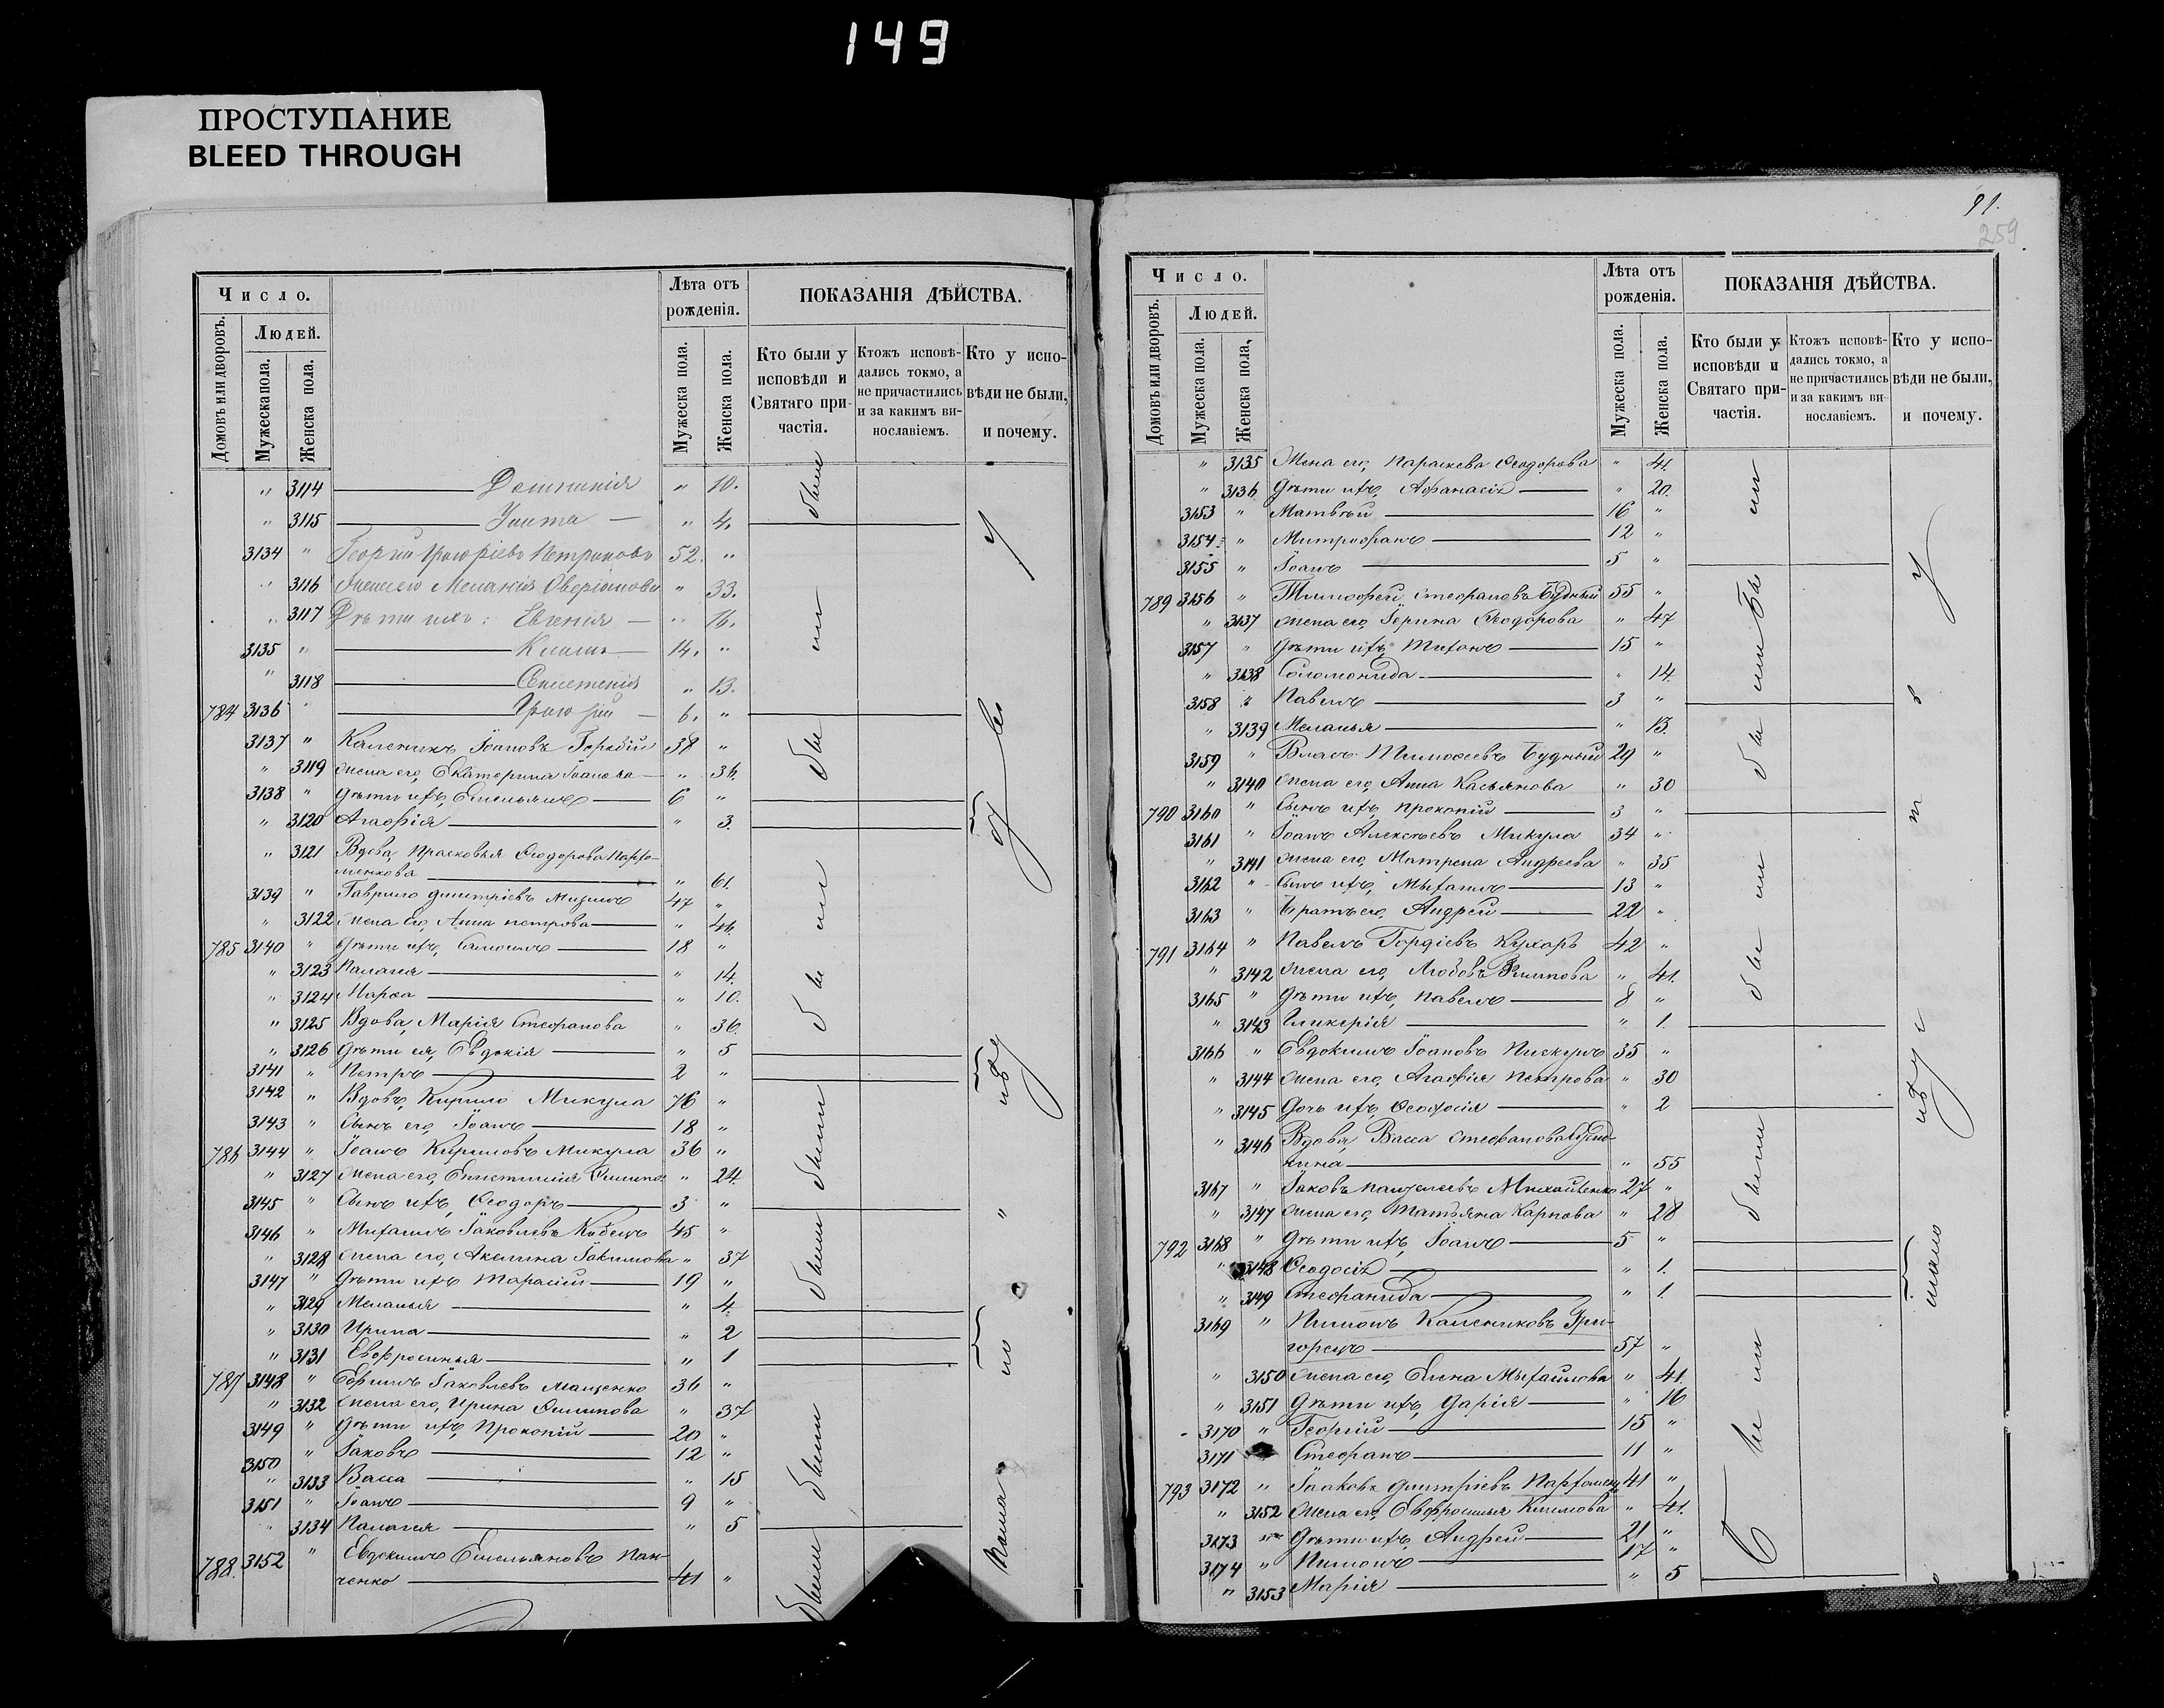 149
ПРОСТУПАНИЕ
BLEED THROUGH
Число.
Людей.
Домовъ или дворовъ.
Мужеска пола.
Женска пола.
Лѣта отъ рожденія.
Мужеска пола.
Женска пола.
ПОКАЗАНІЯ ДѢЙСТВА.
Кто были у исповѣди и Святаго при-частія.
Ктожъ исповѣ-дались токмо, а не причастились и за какимъ ви-нославіемъ.
Кто у испо-вѣди не были, и почему.
" 3114 " 10.
" 3115 " 4.
3134 " Георгій Григоріевъ 52. "
" 3116 Жена его Меланія " 33.
" 3117 Дѣти ихъ: Евгенія " 16.
3135 " 14. "
" 3118 " 13.
784 3136 " Григорій 6. "
3137 " Каленикъ Іоановъ 38 "
" 3119 Жена его, Екатерина Іоанова " 36.
3138 " Дѣти ихъ, Емельянъ 6 "
" 3120 Агафія " 3.
" 3121 Вдова, Прасковья Ѳеодорова Парфо-
менкова " 61.
3139 " Гаврило Дмитріевъ 47 "
" 3122 Жена его, Анна Петрова " 46.
785 3140 " Дѣти ихъ, Самоилъ 18 "
" 3123 Палагея " 14.
" 3124 Марѳа " 10.
" 3125 Вдова, Марія Стефанова " 36.
" 3126 Дѣти ея, Евдокія " 5
3141 " Петръ 2 "
3142 " Вдовъ, Кирило Микула 76 "
3143 " Сынъ его, Іоанъ 18 "
786 3144 " Іоанъ Кириловъ Микула 36 "
" 3127 Жена его, " 24.
3145 " Сынъ ихъ, Ѳеодоръ 3 "
3146 " Михаилъ Іаковлевъ 45 "
" 3128 Жена его, Акелина Іакимова " 37
3147 " Дѣти ихъ Тарасій 19 "
" 3129 Меланья " 4.
" 3130 Ирина " 2
" 3131 Евфросинья " 1
787 3148 " Ефимъ Іаковлевъ 36 "
" 3132 Жена его, Ирина Филипова " 37
3149 " Дѣти ихъ, Прокопій 20 "
3150 " Іаковъ 12 "
" 3133 Васса " 15
3151 " Іоанъ 9 "
" 3134 Палагея " 5
788. 3152 " Евдокимъ Емельяновъ Пан-
ченко 41 "
были
91.
259
Число.
Людей.
Домовъ или дворовъ.
Мужеска пола.
Женска пола.
Лѣта отъ рожденія.
Мужеска пола.
Женска пола.
ПОКАЗАНІЯ ДѢЙСТВА.
Кто были у исповѣди и Святаго при-частія.
Ктожъ исповѣ-дались токмо, а не причастились и за какимъ ви-нославіемъ.
Кто у испо-вѣди не были, и почему.
" 3135 Жена его, Параскева Ѳеодорова " 41.
" 3136 Дѣти ихъ, Афанасія " 20.
3153 " Матвѣй 16 "
3154 " Митрофанъ 12 "
3155 " Іоанъ 5 "
789 3156 " Тимофей Стефановъ Будный 55 "
" 3137 Жена его, Ѳеодорова " 47
3157 " Дѣти ихъ Титонъ 15 "
" 3138 Соломонида " 14.
3158 " Павелъ 3 "
" 3139 Меланья " 13.
3159 " Власъ Тимофеевъ Будный 29 "
" 3140 Жена его, Анна Касьянова " 30
790 3160 " Сынъ ихъ, Прокопій 3 "
3161 " Іоанъ Алексѣевъ Микула 34 "
" 3141 Жена его, Матрена Андреева " 35
3162 " Сынъ ихъ, Михаилъ 13 "
3163 " Братъ его, Андрей 22 "
791 3164 " Павелъ Гордіевъ Кухарь 42 "
" 3142 Жена его, Любовь Филипова " 41.
3165 " Дѣти ихъ, Павелъ 8 "
" 3143 Гликерія " 1.
3166 " Евдокимъ Іоановъ Пискунъ 35 "
" 3144 Жена его, Агафія Петрова " 30
" 3145 Дочь ихъ, Ѳеодосія " 2
" 3146 Вдова, Васса Стефанова
" 55
3167 " Іаковъ 27 "
" 3147 Жена его, Татьяна Карпова " 28
792 3168 " Дѣти ихъ, Іоанъ 5 "
" 3148 Ѳеодосія " 1.
" 3149 Стефанида " 1.
3169 " Пименъ Калениковъ Гри-
горецъ 57 "
" 3150 Жена его, Елена Михайлова " 41.
" 3151 Дѣти ихъ, Дарія " 16
3170 " Георгій 15 "
3171 Стефанъ 11 "
793 3172 " Іаковъ Дмитріевъ 41 "
" 3152 Жена его, Евфросинья Климова " 41.
3173 Дѣти ихъ, Андрей 21 "
3174 " Пименъ 17 "
" 3153 Марія " 5